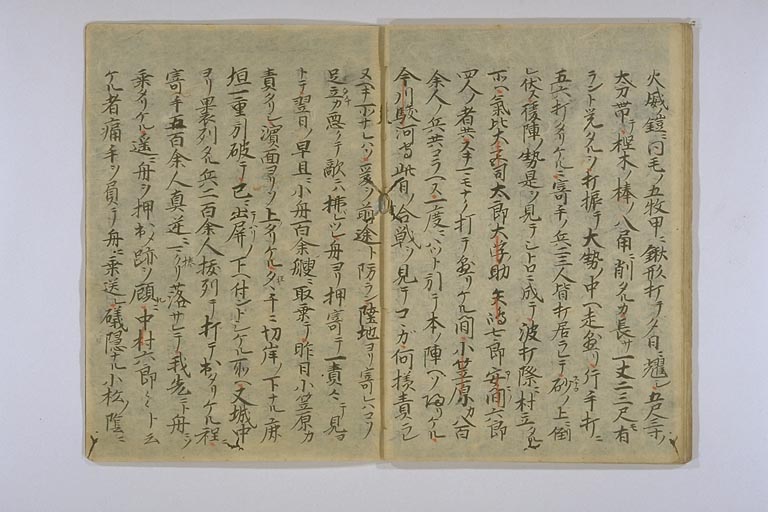 火威鎧ニ同毛ノ五枚甲ニ鍬形打テ夕日ニ耀シ五尺三寸ノ
太刀帯テ樫木ノ棒ノ八角ニ削タルカ長サ一丈二三尺モ有
ラント覚タルヲ打振テ大勢ノ中ヘ走出リ片手打ニ
五六打タリケルニ寄手ノ兵二三人皆打居ラレテ砂ノ上ニ倒
レ伏ス後陣ノ勢是ヲ見テシトロニ成テ波打際ニ村立タル
所ヘ氣比大宮司太郎大学助矢嶋七郎安間六郎
四人者共スキモナク打テ出リケル間小笠原カ八百
余人兵共又一度ニハツト引テ本ノ陣ヘソ帰リケル
今川駿河守此日ノ合戦ヲ見テコヽカ何様責ラレ
又ヘキ所ナレハソ爰ヲ前途ト防ラン陸地ヨリ寄レハコソ
足立カ悪クテ敵ニハ拂レツレ舟ヨリ押寄テ一責々テ見ヨ
トテ翌日ノ早旦ニ小舟百余艘ニ取乗テ昨日小笠原カ
責タリシ濱面ヨリソ上タリケル切岸ノ下ナル鹿
垣一重引破テ已ニ出屏ノ下ヘ付ントシケル所ヘ又城中
ヨリ裏列タル兵二百余人抜列テ打テ出タリケル程ニ
寄手五百余人真逆ニマクリ落サレテ我先ニト舟ニソ
乗タリケル遥ニ舟ヲ押出メ跡ヲ顧ルニ中村六郎ト云
ケル者痛手ヲ負テ舟ニ乗送レ礒隠ナル小松ノ陰ニ